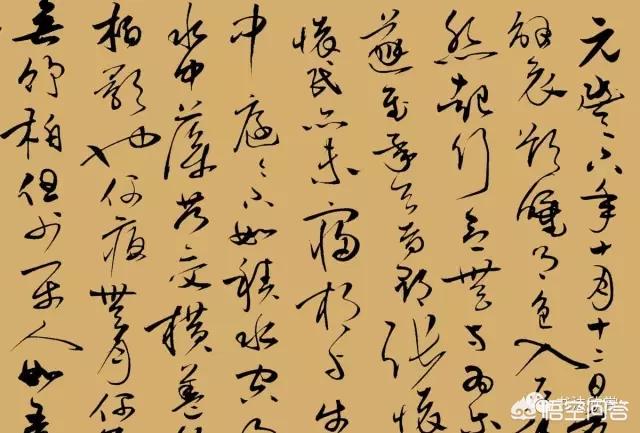 元豐六年十月十二日
解衣欲睡月色入
然起行念無与为樂
遂至承天寺尋張懷
懷民亦未寢相与步
中庭庭下如積水空
水中藻荇交横蓋
柏影也何夜無月何
無竹柏但少闲人如吾
书法欣赏
悟空问答